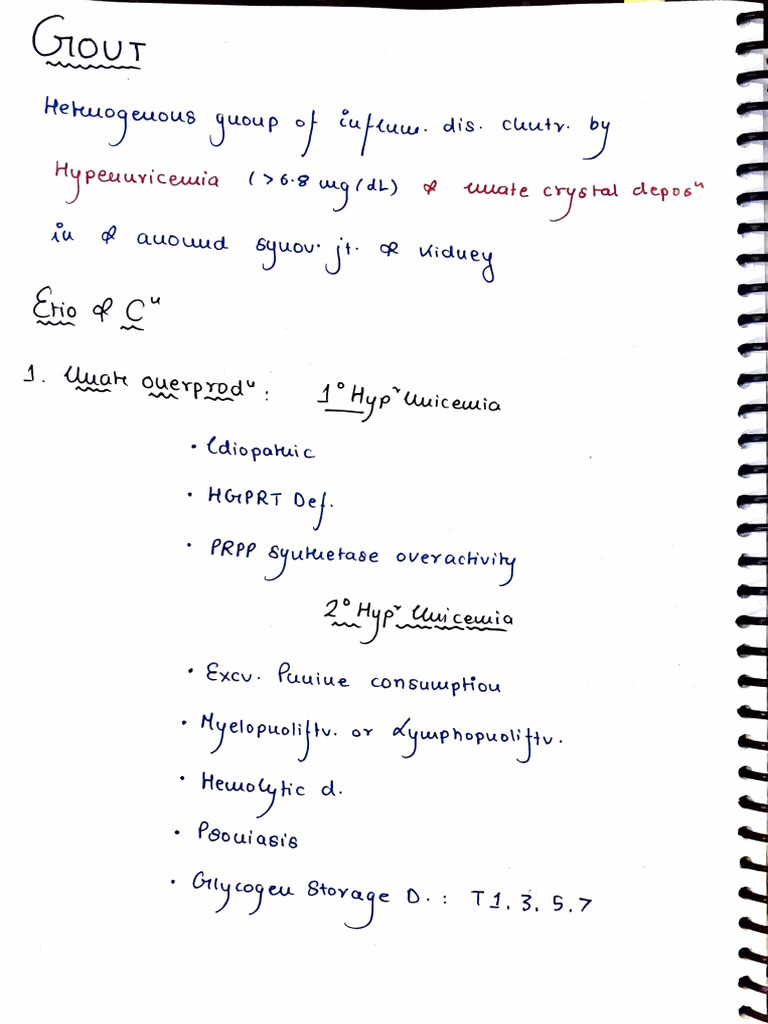 GOUT
Heterogenous group of inflamm. dis. chctr. by
Hyperuricemia (>6.8 mg/dL) & urate crystal deposⁿ
in & around synov. jt. & Kidney
Etio & Cⁿ
1. Urate overprodⁿ : 1° Hypʳ Uricemia
• Idiopathic
• HGPRT Def.
• PRPP synthetase overactivity
2° Hypʳ Uricemia
• Excv. Purine consumption
• Myeloproliftv. or Lymphoproliftv.
• Hemolytic d.
• Psoriasis
• Glycogen Storage D. : T1, 3, 5, 7